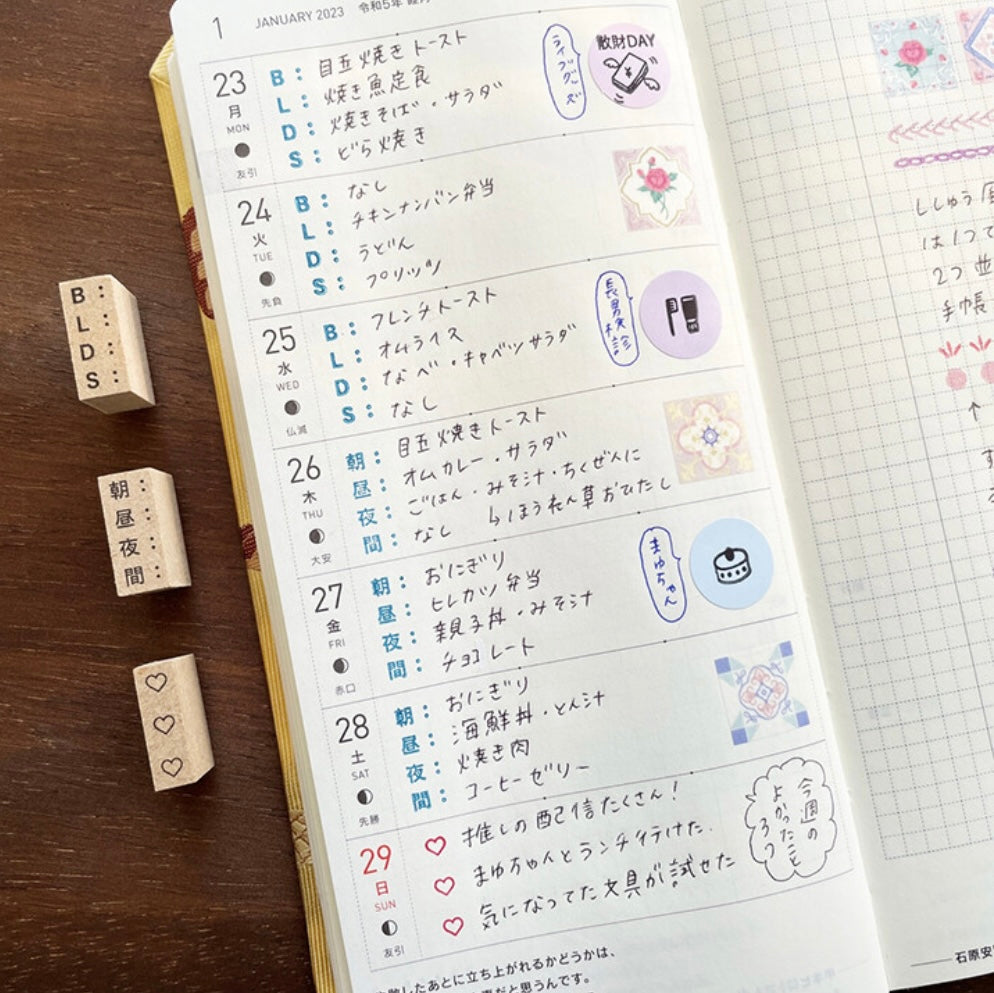 1 JANUARY 2023 令和5年
23 月 MON 友引
B: 目玉焼きトースト
L: 焼き魚定食
D: 焼きそば・サラダ
S: どら焼き
散財DAY
24 火 TUE 先負
B: なし
L: チキンナンバン弁当
D: うどん
S: プリッツ
25 水 WED 仏滅
B: フレンチトースト
L: オムライス
D: なべ・キャベツサラダ
S: なし
長男検診
26 木 THU 大安
朝: 目玉焼きトースト
昼: オムカレー・サラダ
夜: ごはん・みそ汁・ちくぜんに
↳ほうれん草おひたし
間: なし
27 金 FRI 赤口
朝: おにぎり
昼: ヒレカツ弁当
夜: 親子丼・みそ汁
間: チョコレート
まゆちゃん
28 土 SAT 先勝
朝: おにぎり
昼: 海鮮丼・とん汁
夜: 焼き肉
間: コーヒーゼリー
29 日 SUN 友引
♡ 推しの配信たくさん!
♡ まゆちゃんとランチ行けた.
♡ 気になってた文具が試せた
今週の
よかったこと
3つ
したあとに立ち上がれるかどうかは、
だと思うんです。
B:
L:
D:
S:
朝:
昼:
夜:
間:
♡
♡
♡
ししゅう
は1つで
2つ並
手帳
↑
石原安